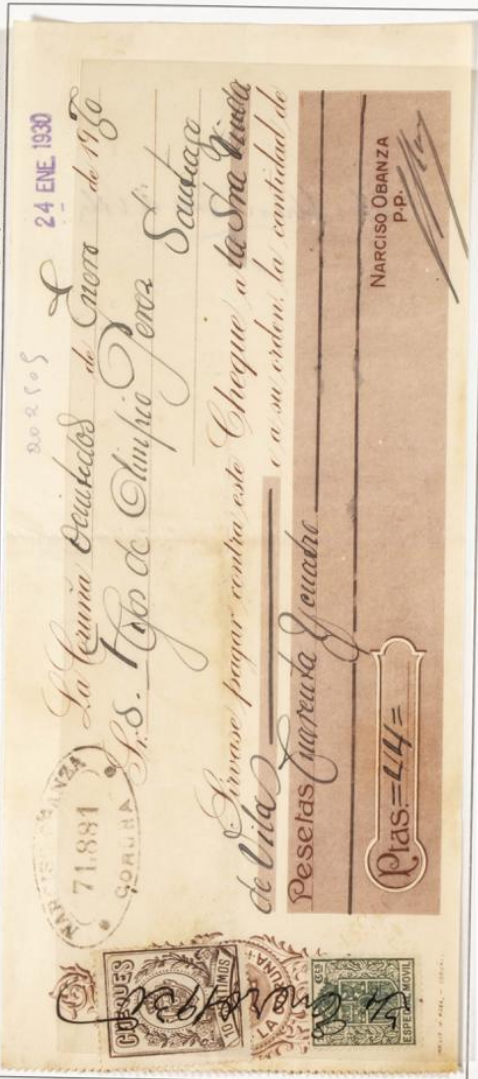 24 ENE. 1930
202505
NARCISO OBANZA
71.881
CORUÑA
La Coruña veintidos de Enero de 1930
Sr. S. Hijos de Olimpio Perez
Santiago
Sirvase pagar contra este Cheque a la Sra Viuda
de Vila o a su orden, la cantidad de
Pesetas Cuarenta y cuatro
Ptas.=44=
NARCISO OBANZA
P.P.
CHEQUES
10 CENTIMOS
LA CORUÑA
ESPECIAL MOVIL
Enero 1930